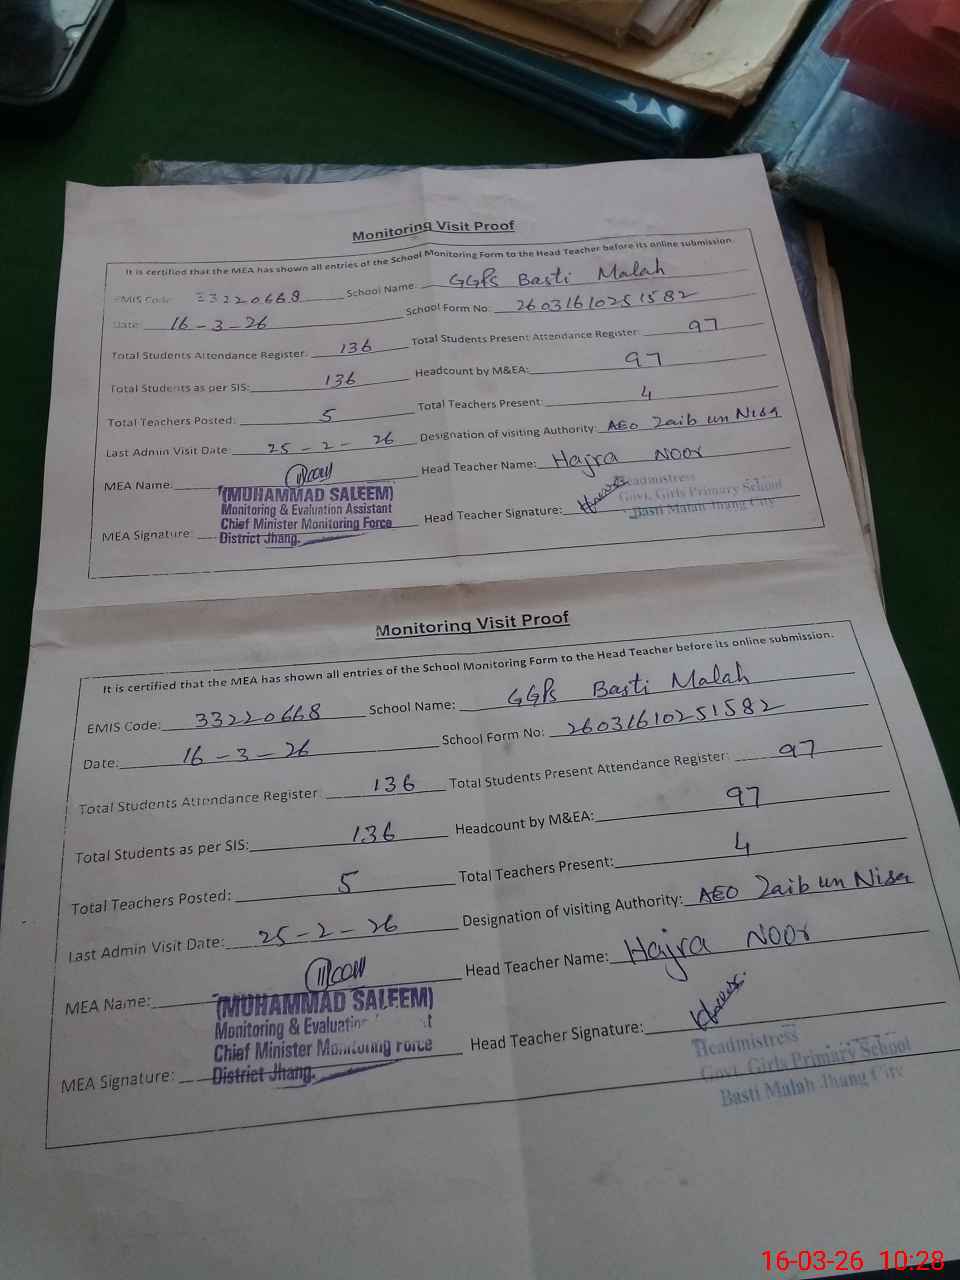 Monitoring Visit Proof
It is certified that the MEA has shown all entries of the School Monitoring Form to the Head Teacher before its online submission.
EMIS Code: 33220668 School Name: GGPS Basti Malah
Date: 16-3-26 School Form No: 26031610251582
Total Students Attendance Register: 136 Total Students Present Attendance Register: 97
Total Students as per SIS: 136 Headcount by M&EA: 97
Total Teachers Posted: 5 Total Teachers Present: 4
Last Admin Visit Date: 25-2-26 Designation of visiting Authority: AEO Zaib un Nisa
MEA Name: Head Teacher Name: Hajra Noor
(MUHAMMAD SALEEM)
Monitoring & Evaluation Assistant
Chief Minister Monitoring Force
District Jhang.
MEA Signature: Head Teacher Signature:
Headmistress
Govt. Girls Primary School
Basti Malah Jhang City
Monitoring Visit Proof
It is certified that the MEA has shown all entries of the School Monitoring Form to the Head Teacher before its online submission.
EMIS Code: 33220668 School Name: GGPS Basti Malah
Date: 16-3-26 School Form No: 26031610251582
Total Students Attendance Register: 136 Total Students Present Attendance Register: 97
Total Students as per SIS: 136 Headcount by M&EA: 97
Total Teachers Posted: 5 Total Teachers Present: 4
Last Admin Visit Date: 25-2-26 Designation of visiting Authority: AEO Zaib un Nisa
MEA Name: Head Teacher Name: Hajra Noor
(MUHAMMAD SALEEM)
Monitoring & Evaluation
Chief Minister Monitoring Force
District Jhang.
MEA Signature: Head Teacher Signature:
Headmistress
Govt. Girls Primary School
Basti Malah Jhang City
16-03-26 10:28